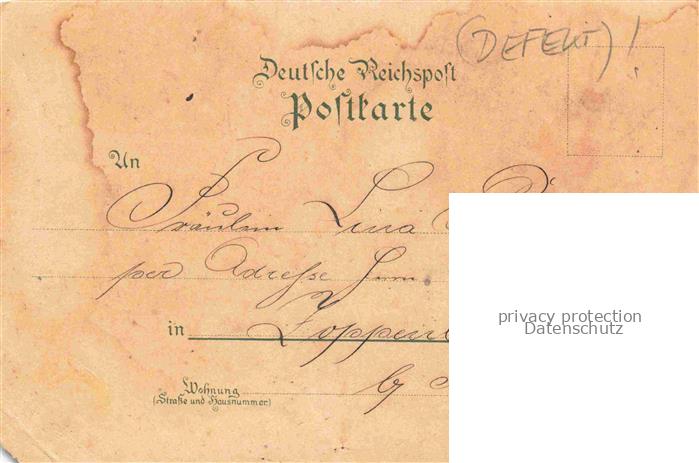 (DEFEKT)!
Deutsche Reichspost
Postkarte
An
Fräulein Lina
per Adresse
in
Wohnung
(Straße und Hausnummer)
privacy protection
Datenschutz